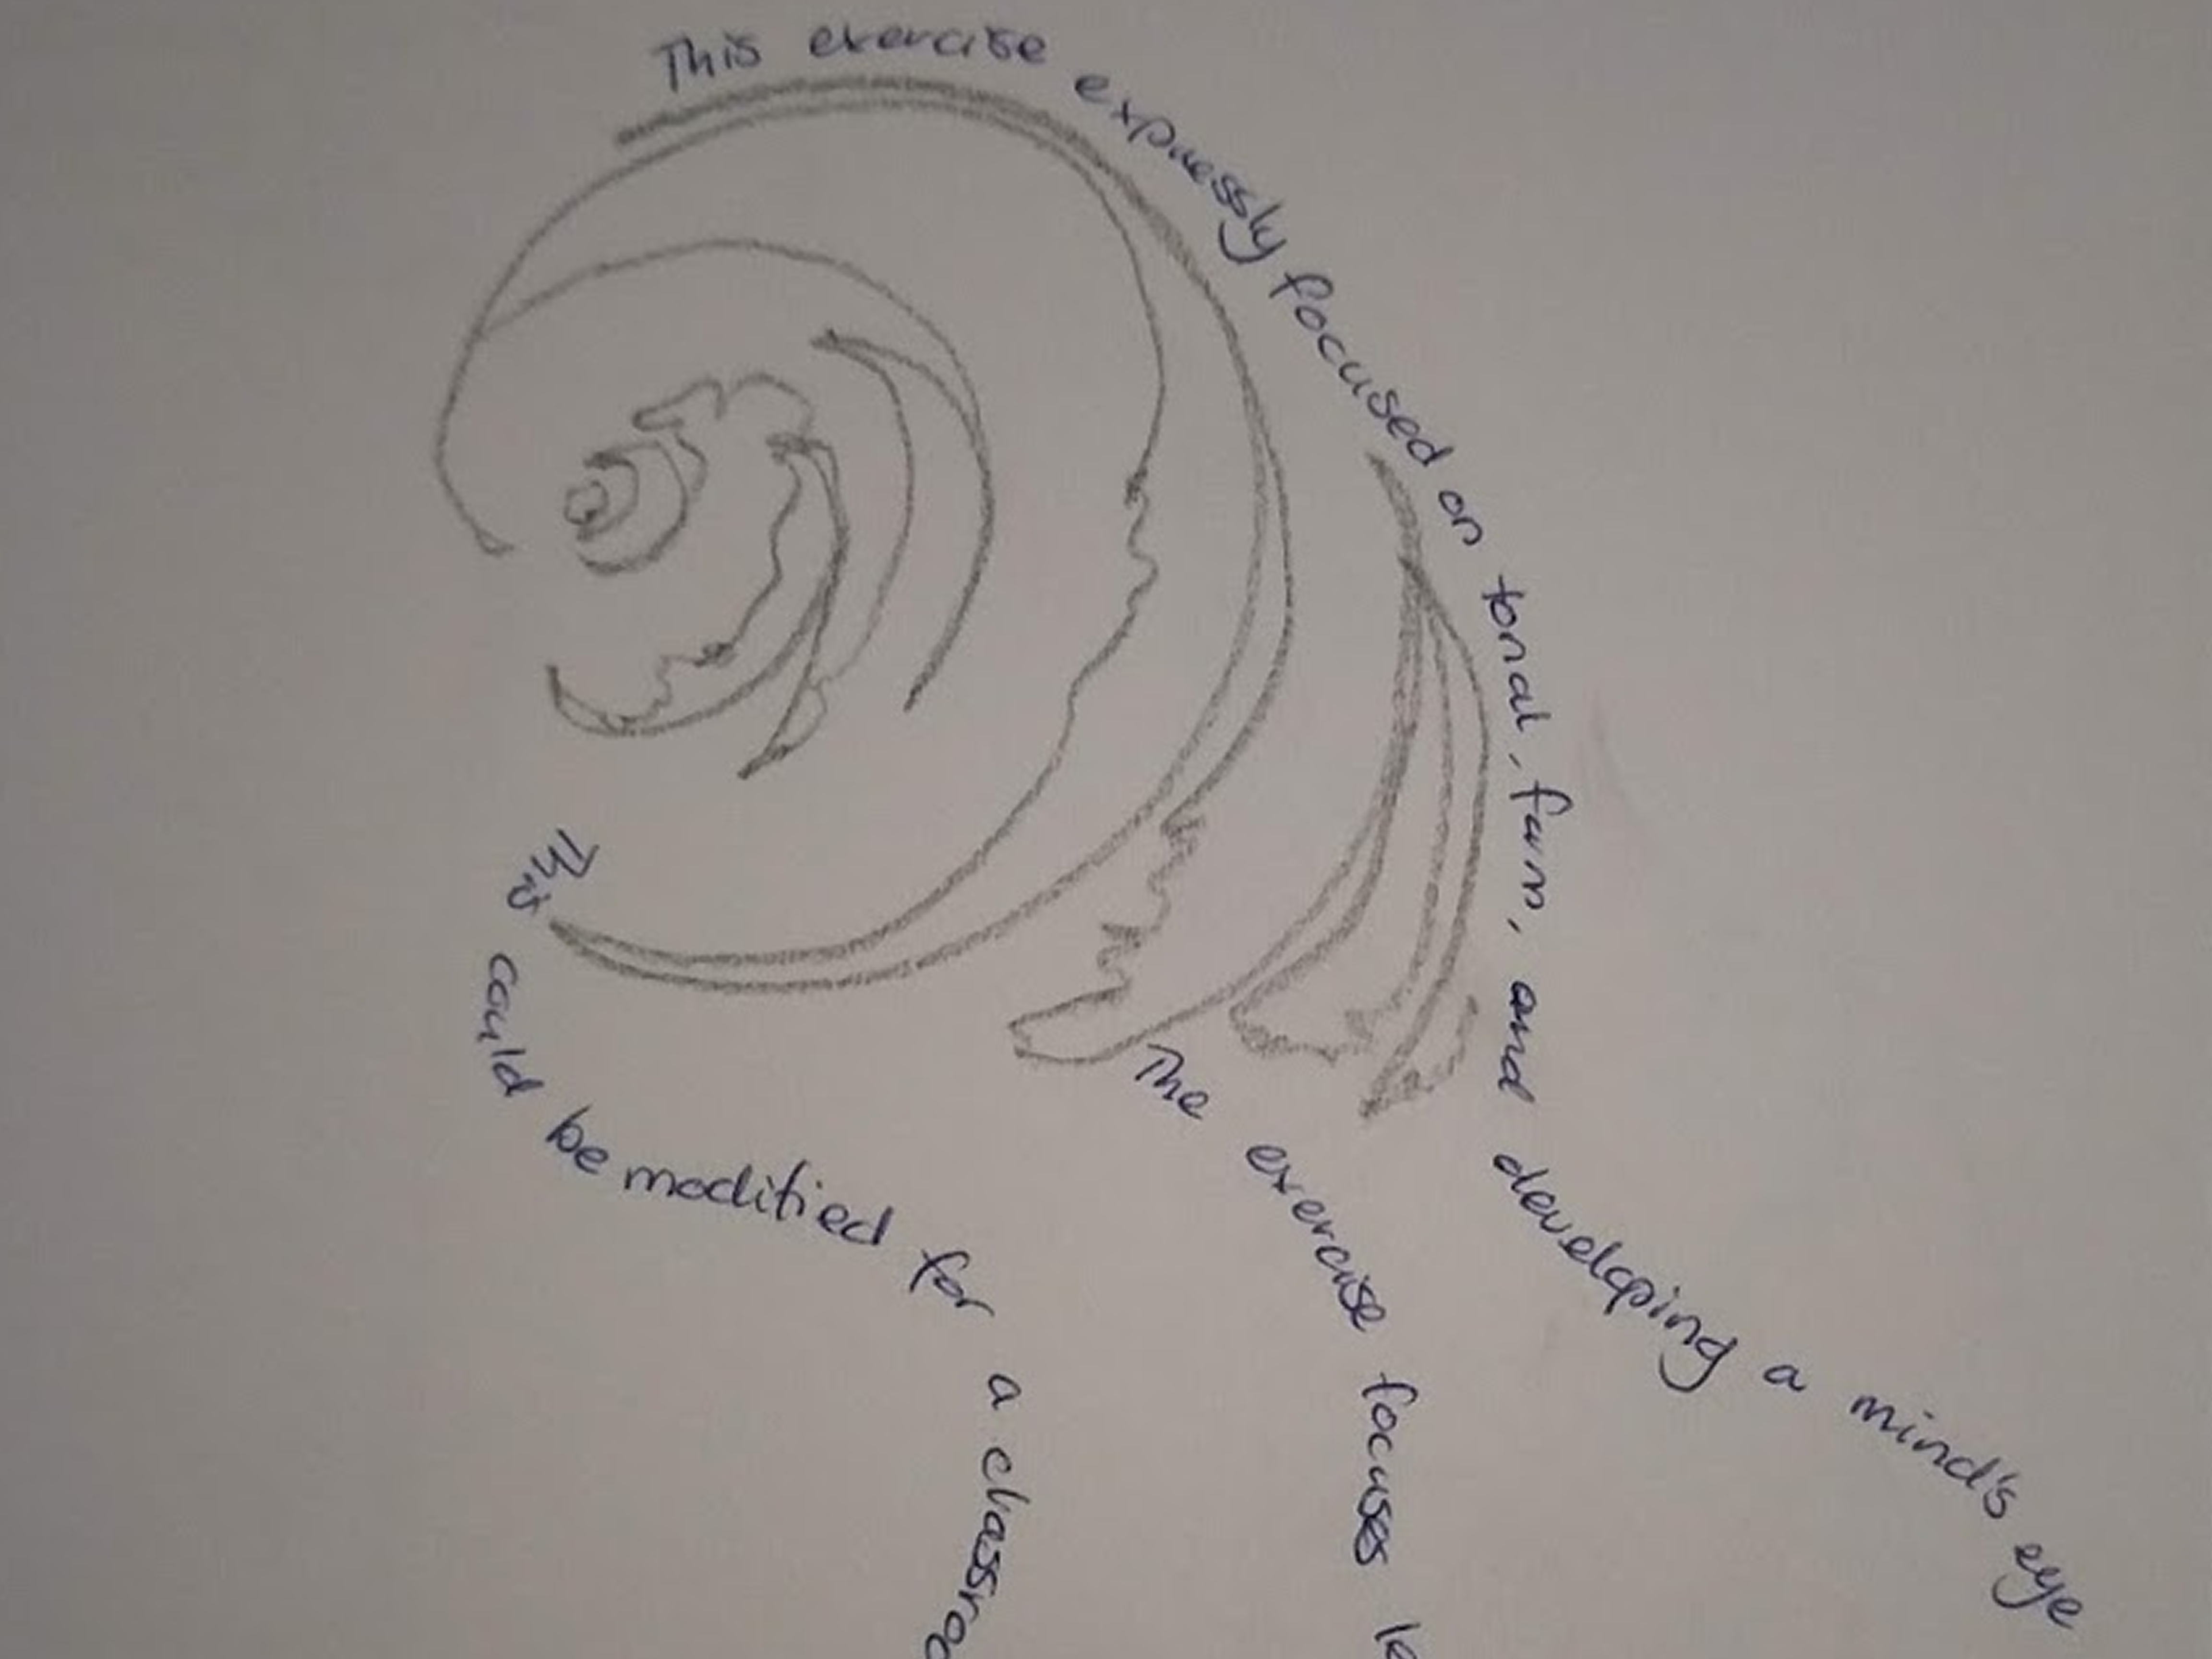 This exercise expressly focused on tonal, form, and developing a mind's eye
The exercise focuses le
This could be modified for a classroo